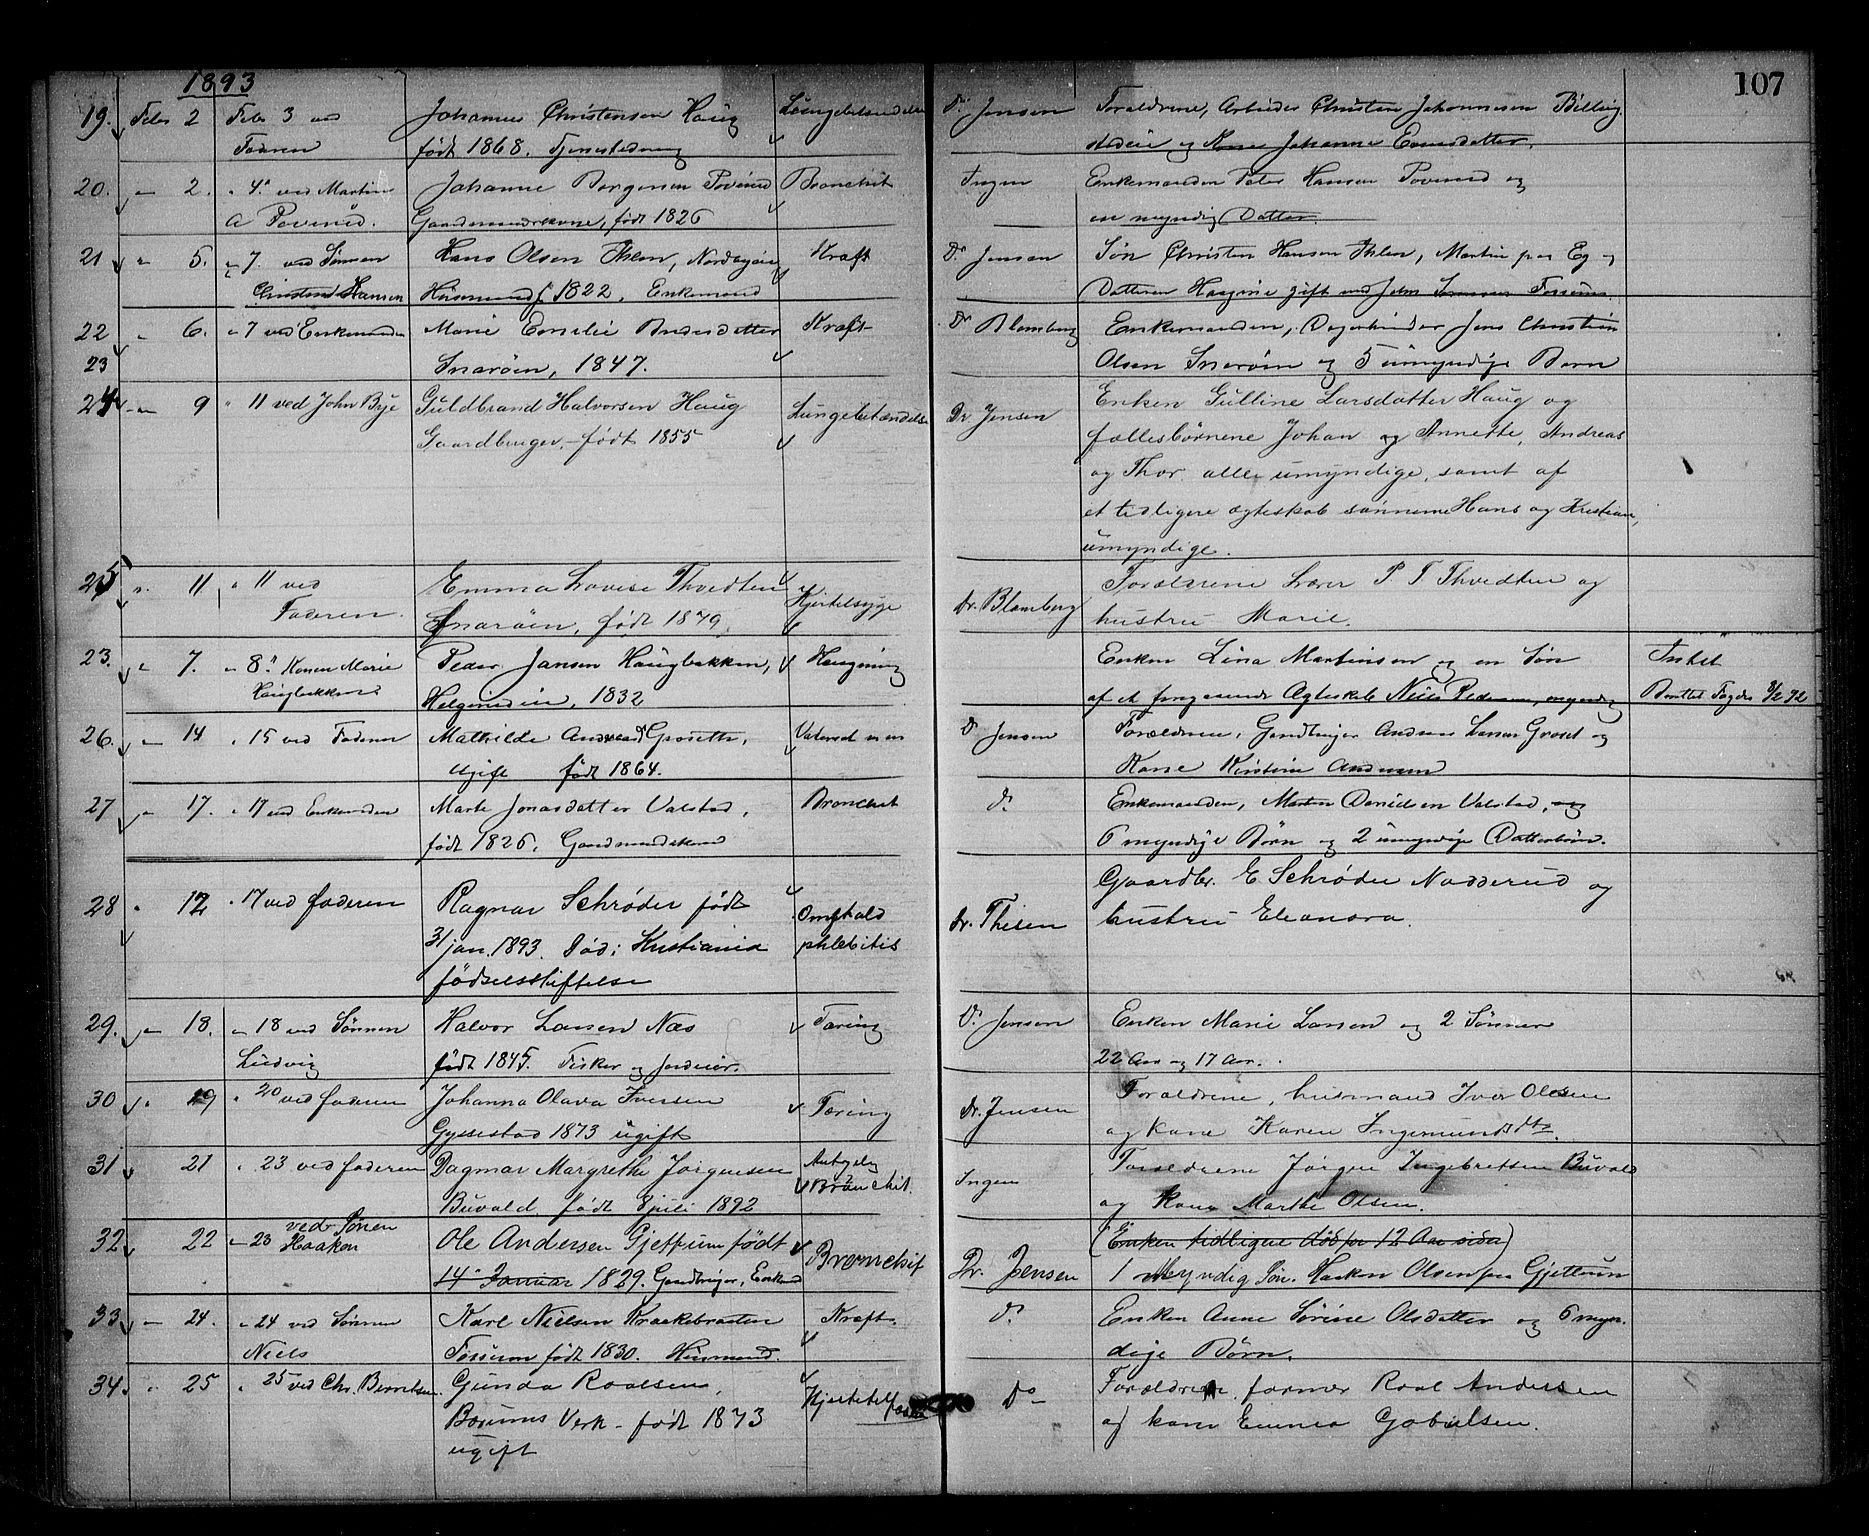 1893
107
19. Febr 2 Febr 3 ved Johannes Christensen Haug Lungebetændelse Dr Jensen Forældrene, Arbeider Christen Johannesen Billing
Faderen født 1868. Tjenestedreng stadeie og Kone Johanne Evensdatter.
20. " 2. " 4 ved Martin Johanne Borgersen Poverud Bronchit Ingen Enkemanden Peter Hansen Poverud og
A Poverud. Gaardmandskone, født 1826 en myndig Datter
21 " 5. " 7. ved Sønnen Hans Olsen Ihlen, Kraft Dr Jensen Søn Christen Hansen Ihlen, Martin paa Eg og
Christen Hansen Husmand f 1822. Enkemand Datteren gift ved John Fossum.
22 " 6. " 7 ved Enkemanden Marie Andersdatter Kraft Dr Blomberg Enkemanden, Jens Christian
23 Snarøen, 1847. Olsen Snarøen og 5 umyndige Børn
24 " 9 " 11 ved John Bye Guldbrand Halvorsen Haug Lungebetændelse Dr Jensen Enken Gulline Larsdatter Haug og
Gaardbruger, født 1855 fællesbørnene Johan og Annette, Andreas
og Thor alle umyndige, samt af
et tidligere ægteskab sønnerne Hans og Kristian,
umyndige.
25 " 11 " 11 ved Emma Lovise Thvedten Kjertelsyge Dr. Blomberg Forældrene Lærer P T Thvedten og
Faderen. Snarøen, født 1879, hustru Marie.
23. " 7. " 8 Konen Marie Peder Jansen Haugbakken, Hængning Enken Lina Martinsen og en Søn Intet
Haugbakken 1832 af et foregaaende Ægteskab Niels Pedersen, myndig
26. " 14 " 15 ved Faderen Mathilde Grosett, Dr Jensen Forældrene, Gaardbruger Andreas Larsen Groset og
ugift født 1864. Kone Kirstine Andersen
27 " 17. " 17 ved Enkemanden Marte Jonasdatter Valstad, Bronchit do Enkemanden, Morten Danielsen Valstad, og
født 1826, Gaardmandskone 6 myndige Børn og 2 umyndige Datterbørn.
28 " 12 " 17 ved faderen Ragnar Schrøder født Omphalo Dr. Thisen Gaardbr. E Schrøder Nadderud og
31 jan. 1893. Død i Kristiania phlebitis hustru Eleonora.
fødselsstiftelse
29. " 18. " 18 ved Sønnen Halvor Larsen Næs Tæring Dr Jensen Enken Marie Larsen og 2 Sønner
Ludvig født 1845. Fisker og Jordeier. 22 Aar og 17 Aar.
30 " 19 " 20 ved faderen Johanna Olava Iversen Tæring Dr. Jensen Forældrene, husmand Iver Olesen
Gyssestad 1873 ugift og kone Karen Ingemundsdtr.
31 21 " 23 ved faderen Dagmar Margrethe Jørgensen Bronchit. Ingen Forældrene Jørgen Ingebretsen Buvald
Buvald født 8 juli 1892 og Kone Marthe Olsen.
32 22 " 23 ved Sønen Ole Andersen Gjettum født Bronchit Dr. Jensen (Enken tidligere død for 12 Aar siden)
Haakon 14 Januar 1829. Gaardbruger, Enkemd 1 Myndig Søn. Haakon Olsen paa Gjettum
33 " 24. " 24 ved Sønnen Karl Nielsen Kraakebraaten Kraft. do Enken Anne Sørine Olsdatter og 6 myn-
Niels Fossum født 1830. Husmand. dige Børn.
34. " 25 " 25 ved Chr. Berntsen. Gunda Roalsen, do Forældrene, former Roal Andersen
Bærums Verk - født 1873 og kone Emma Gabrielsen.
ugift